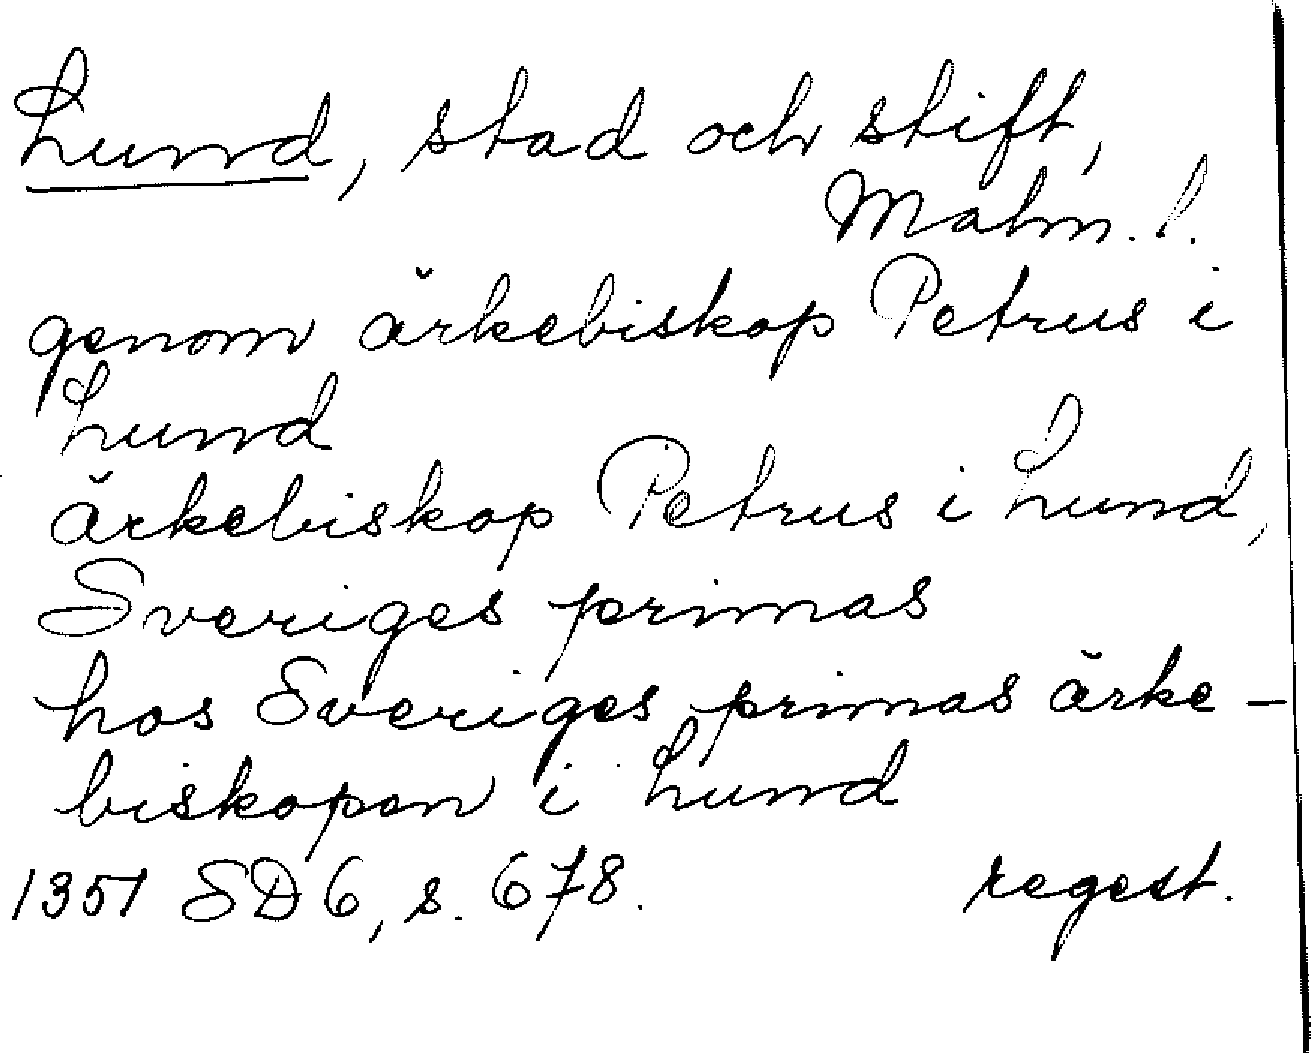 Lund, stad och stift,
Malm. l.
genom ärkebiskop Petrus i
Lund
ärkebiskop Petrus i Lund,
Sveriges primas
hos Sveriges primas ärke-
biskopen i Lund
1351 SD 6, s. 678. regest.